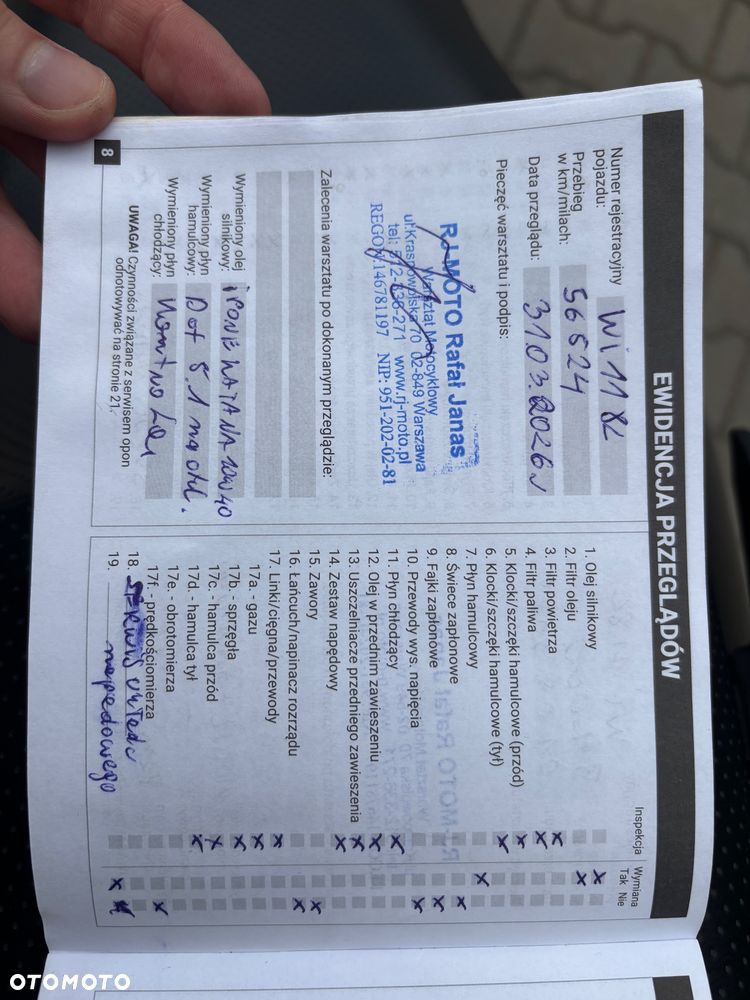 EWIDENCJA PRZEGLĄDÓW
Numer rejestracyjny
pojazdu:
Przebieg
w km/milach:
56524
Data przeglądu:
3103.2026r
Pieczęć warsztatu i podpis:
RJ-MOTO Rafał Janas
Warsztat Motocyklowy
02-849 Warszawa
www.rj-moto.pl
REGON 146781197 NIP: 951-202-02-81
Zalecenia warsztatu po dokonanym przeglądzie:
Wymieniony olej
silnikowy:
IPONE KATANA 10W40
Wymieniony płyn
hamulcowy:
Dot 5.1
Wymieniony płyn
chłodzący:
UWAGA! Czynności związane z serwisem opon
odnotowywać na stronie 21.
8
Inspekcja
Wymiana
Tak Nie
1. Olej silnikowy
2. Filtr oleju
3. Filtr powietrza
4. Filtr paliwa
5. Klocki/szczęki hamulcowe (przód)
6. Klocki/szczęki hamulcowe (tył)
7. Płyn hamulcowy
8. Świece zapłonowe
9. Fajki zapłonowe
10. Przewody wys. napięcia
11. Płyn chłodzący
12. Olej w przednim zawieszeniu
13. Uszczelniacze przedniego zawieszenia
14. Zestaw napędowy
15. Zawory
16. Łańcuch/napinacz rozrządu
17. Linki/cięgna/przewody
17a. - gazu
17b. - sprzęgła
17c. - hamulca przód
17d - hamulca tył
17e. - obrotomierza
17f. - prędkościomierza
18.
19.
napędowego
OTOMOTO